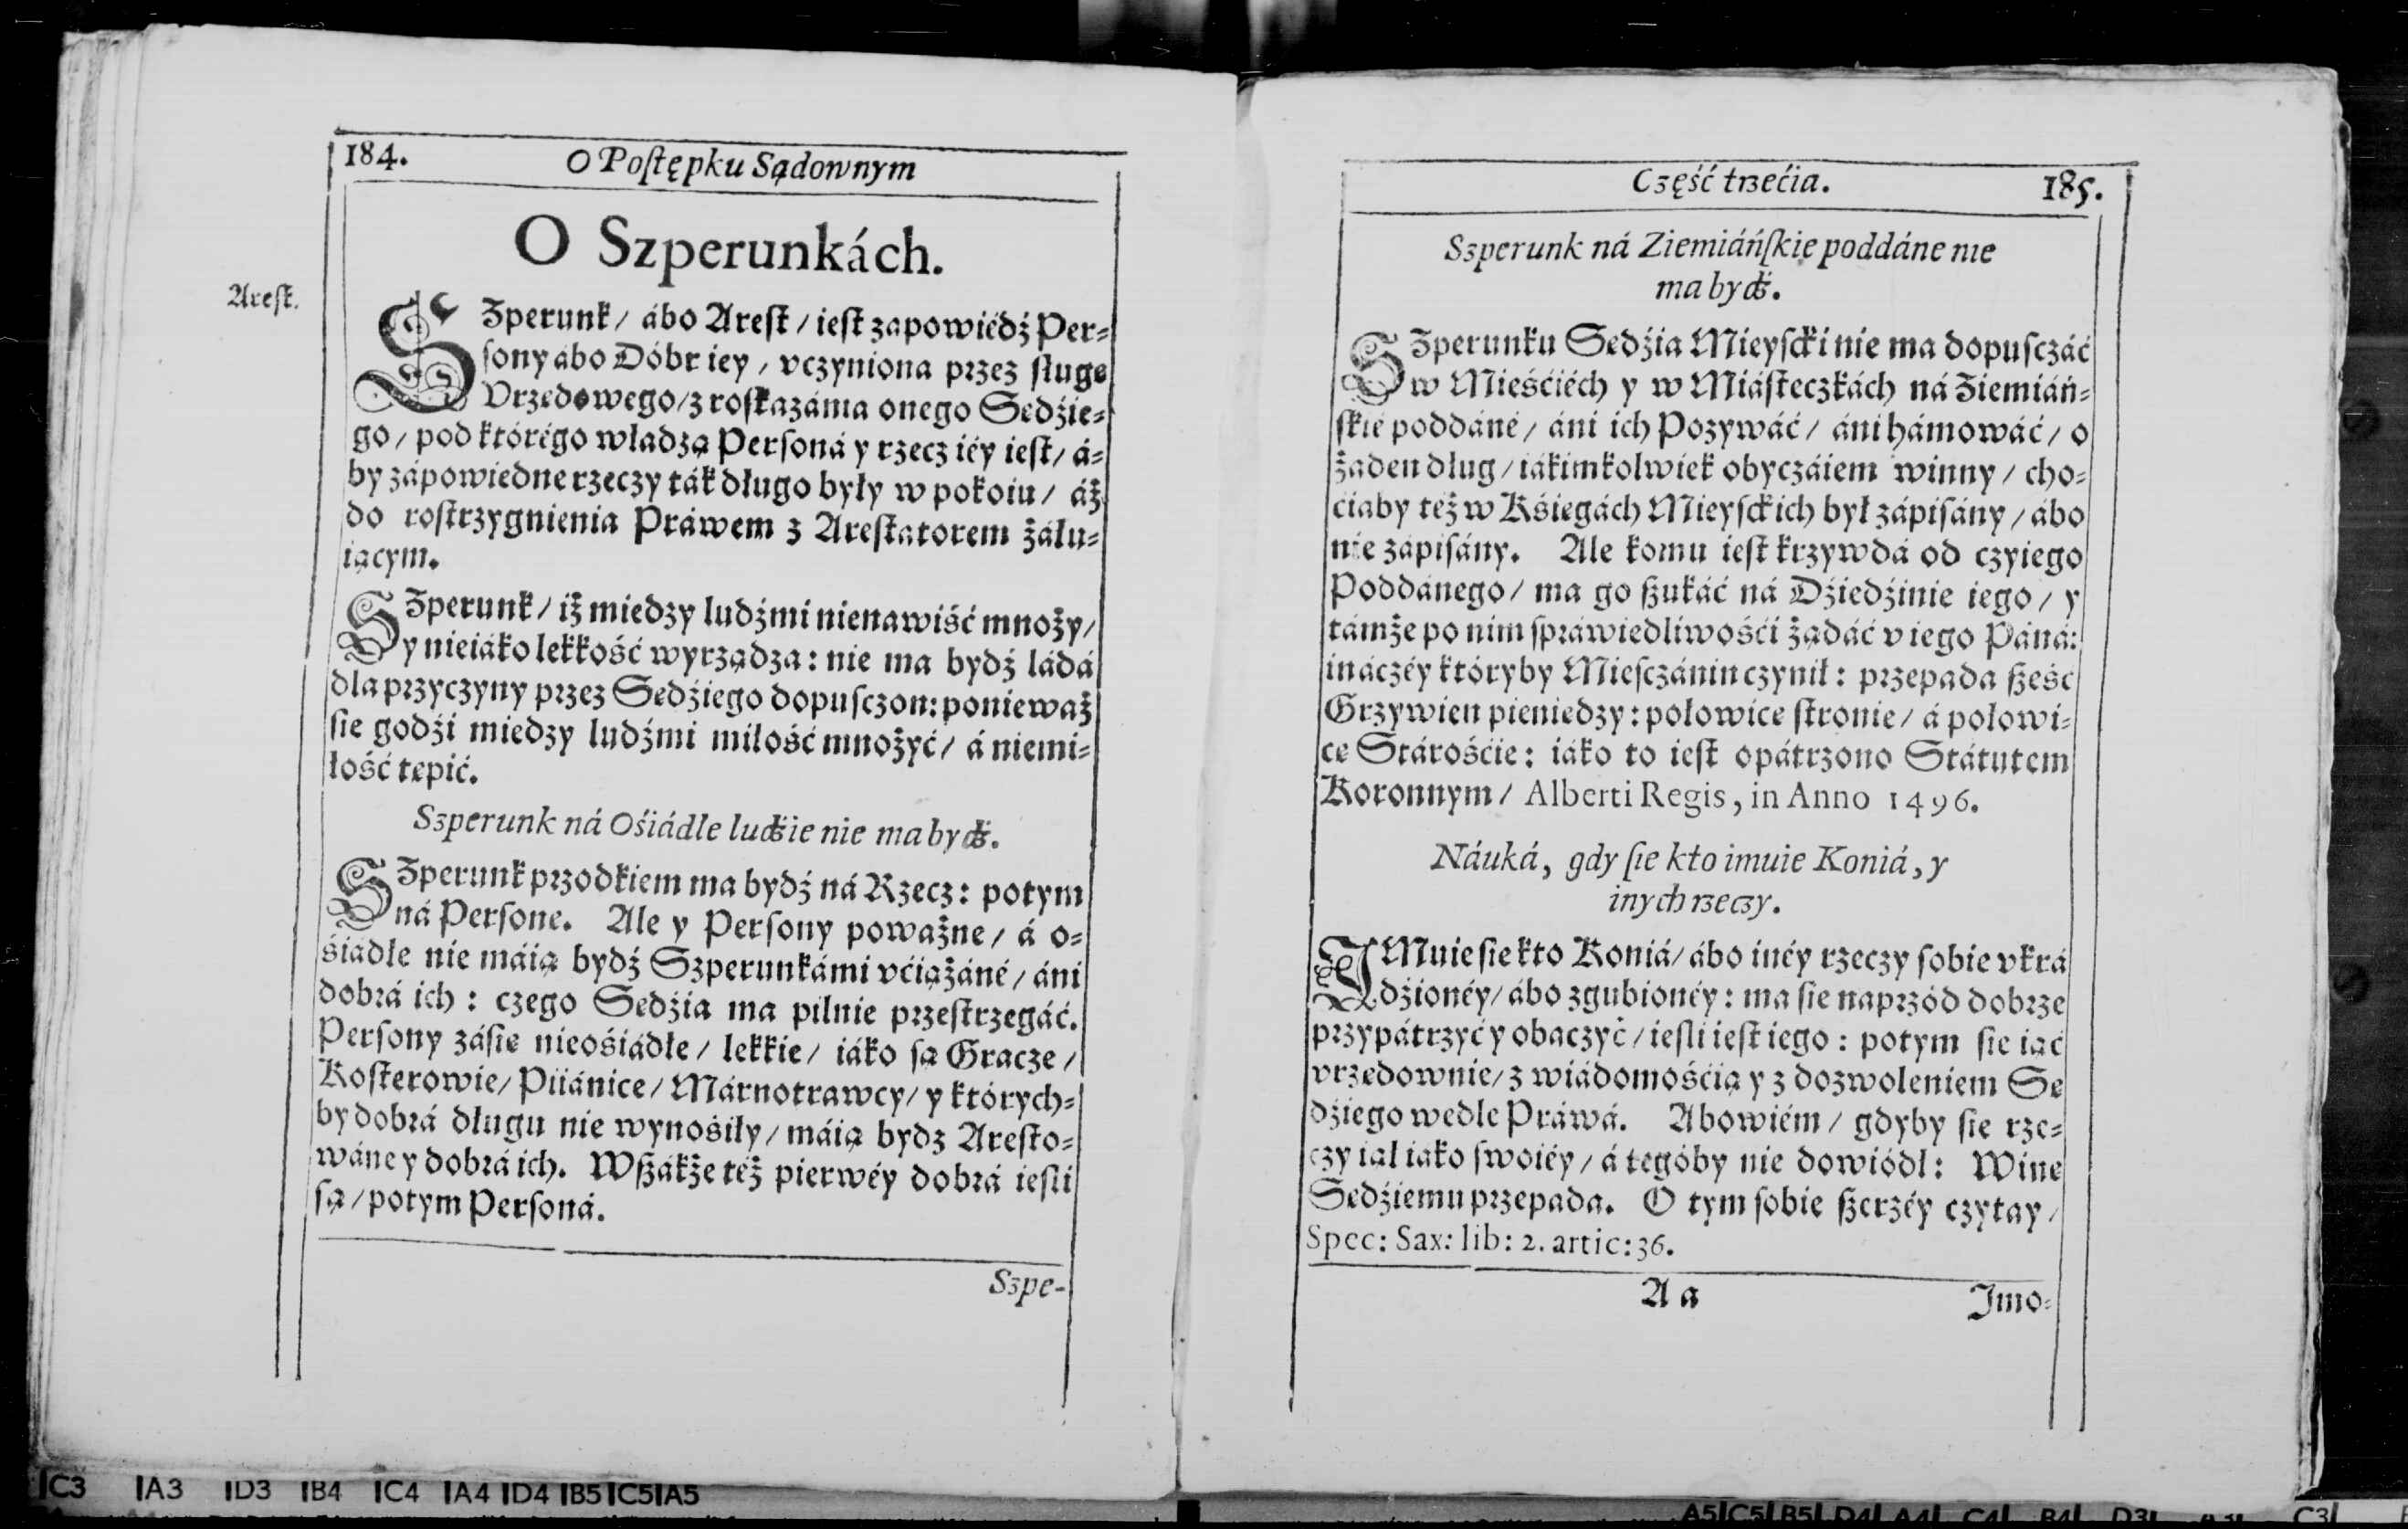 184. O Poſtępku Sądownym
O Szperunkách.
Areſt.
SZperunk / ábo Areſt / ieſt zapowiédź Per-
ſony ábo Dóbr iey / vczyniona przez ſługę
Vrzędowego / z roſkazánia onego Sędźie-
go / pod którégo władzą Perſoná y rzecz iéy ieſt / á-
by zápowiedne rzeczy ták długo były w pokoiu / áż
do roſtrzygnienia Práwem z Areſtatorem żálu-
iącym.
SZperunk / iż miedzy ludźmi nienawiść mnoży /
y nieiáko lekkość wyrządza: nie ma bydź ládá
dla przyczyny przez Sędźiego dopuſczon: ponieważ
ſie godźi miedzy ludźmi miłość mnożyć / á niemi-
łość tępić.
Szperunk ná Ośiádłe ludźie nie ma bydź.
SZperunk przodkiem ma bydź ná Rzecz: potym
ná Perſonę. Ale y Perſony poważne / á o-
śiádłe nie máią bydź Szperunkámi vćiążáné / áni
dobrá ich : czego Sędźia ma pilnie przeſtrzegáć.
Perſony záſię nieośiádłe / lekkie / iáko ſą Gracze /
Koſterowie / Piiánice / Márnotrawcy / y których-
by dobrá długu nie wynośiły / máią bydź Areſto-
wáne y dobrá ich. Wſzákże téż pierwéy dobrá ieſli
ſą / potym Perſoná.
Szpe-
Część trzećia. 185.
Szperunk ná Ziemiáńſkie poddáne nie
ma bydź.
SZperunku Sędźia Mieyſcki nie ma dopuſczáć
w Mieśćiéch y w Miáſteczkách ná Ziemiáń-
ſkié poddáné / áni ich Pozywáć / áni hámowáć / o
żaden dług / iákimkolwiek obyczáiem winny / cho-
ćiaby téż w Kśięgách Mieyſckich był zápiſány / ábo
nie zápiſány. Ale komu ieſt krzywdá od czyiego
Poddánego / ma go ſzukáć ná Dźiedźinie iego / y
támże po nim ſpráwiedliwośći żądáć v iego Páná:
ináczéy któryby Mieſczánin czynił: przepada ſześć
Grzywien pieniędzy: połowicę ſtronie / á połowi-
cę Stárośćie: iáko to ieſt opátrzono Státutem
Koronnym / Alberti Regis, in Anno 1496.
Náuká, gdy ſię kto imuie Koniá, y
inych rzeczy.
IMuie ſię kto Koniá / ábo inéy rzeczy ſobie vkrá
dźionéy / ábo zgubionéy: ma ſię naprzód dobrze
przypátrzyć y obaczyć / ieſli ieſt iego : potym ſię iąć
vrzędownie / z wiádomośćią y z dozwoleniem Sę
dźiego wedle Práwá. Abowiém / gdyby ſię rze-
czy iął iáko ſwoiéy / á tegóby nie dowiódł: Winę
Sędźiemu przepada. O tym ſobie ſzerzéy czytay /
Spec: Sax: lib: 2. artic: 36.
A a Imo-
C3 A3 D3 B4 C4 A4 D4 B5 C5 A5
A5 C5 B5 D4 A4 C4 B4 D3 A3 C3